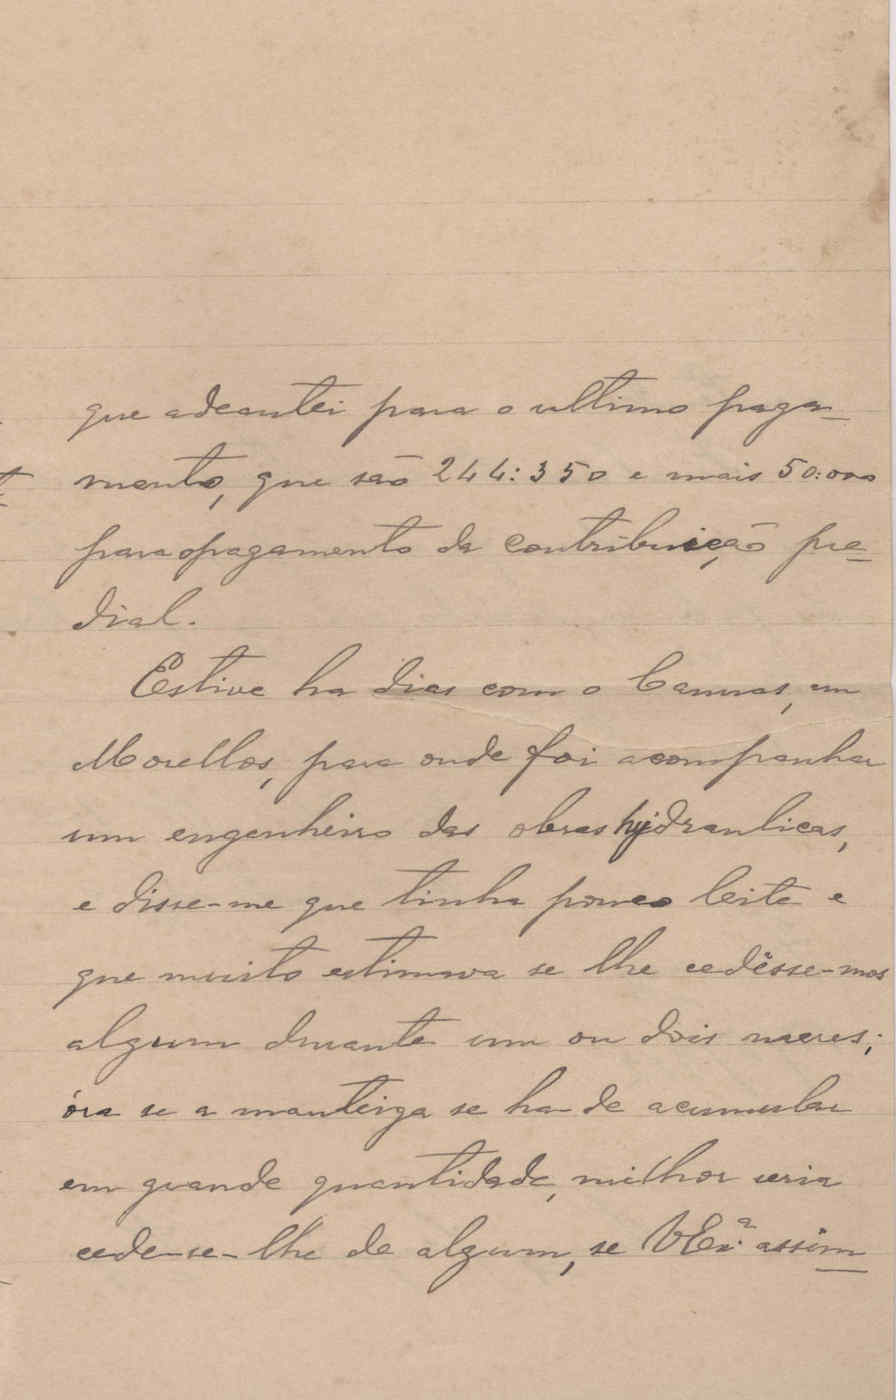 que adeantei para o ultimo paga-
mento, que são 244:350 e mais 50:000
para o pagamento da contribuição pre-
dial.
Estive ha dias com o Camras, em
Morellos, para onde foi acompanhar
um engenheiro das obras hydraulicas,
e disse-me que tinha pouco leite e
que muito estimava se lhe cedêsse-mos
algum durante um ou dois mezes;
óra se a manteiga se ha-de acumular
em grande quantidade, milhor seria
cede-se-lhe de algum, se VExª assim